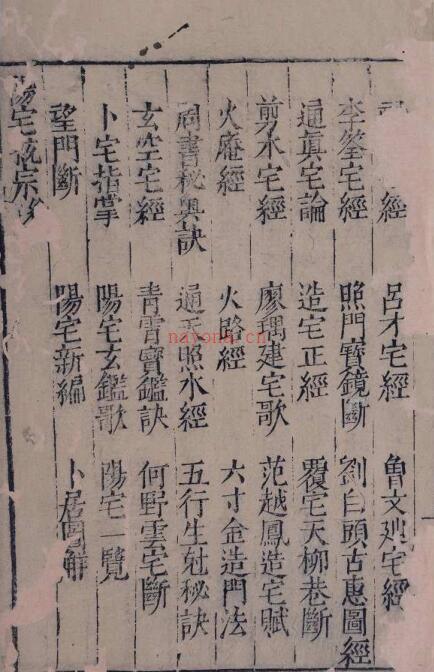 經　呂才宅經　魯文宅經
李筌宅經　照門寶鏡斷　劉白頭古惠圖經
通眞宅論　造宅正經　覆宅天柳巷斷
剪水宅經　廖瑀建宅歌　范越鳳造宅賦
火庵經　火路經　六寸金造門法
書秘奧訣　通照水經　五行生尅秘訣
玄空宅經　青霄寶鑑訣　何野雲宅斷
卜宅指掌　陽宅玄鑑歌　陽宅一覽
望門斷　陽宅新編　卜居圖解
陽宅宗
nayona.cn